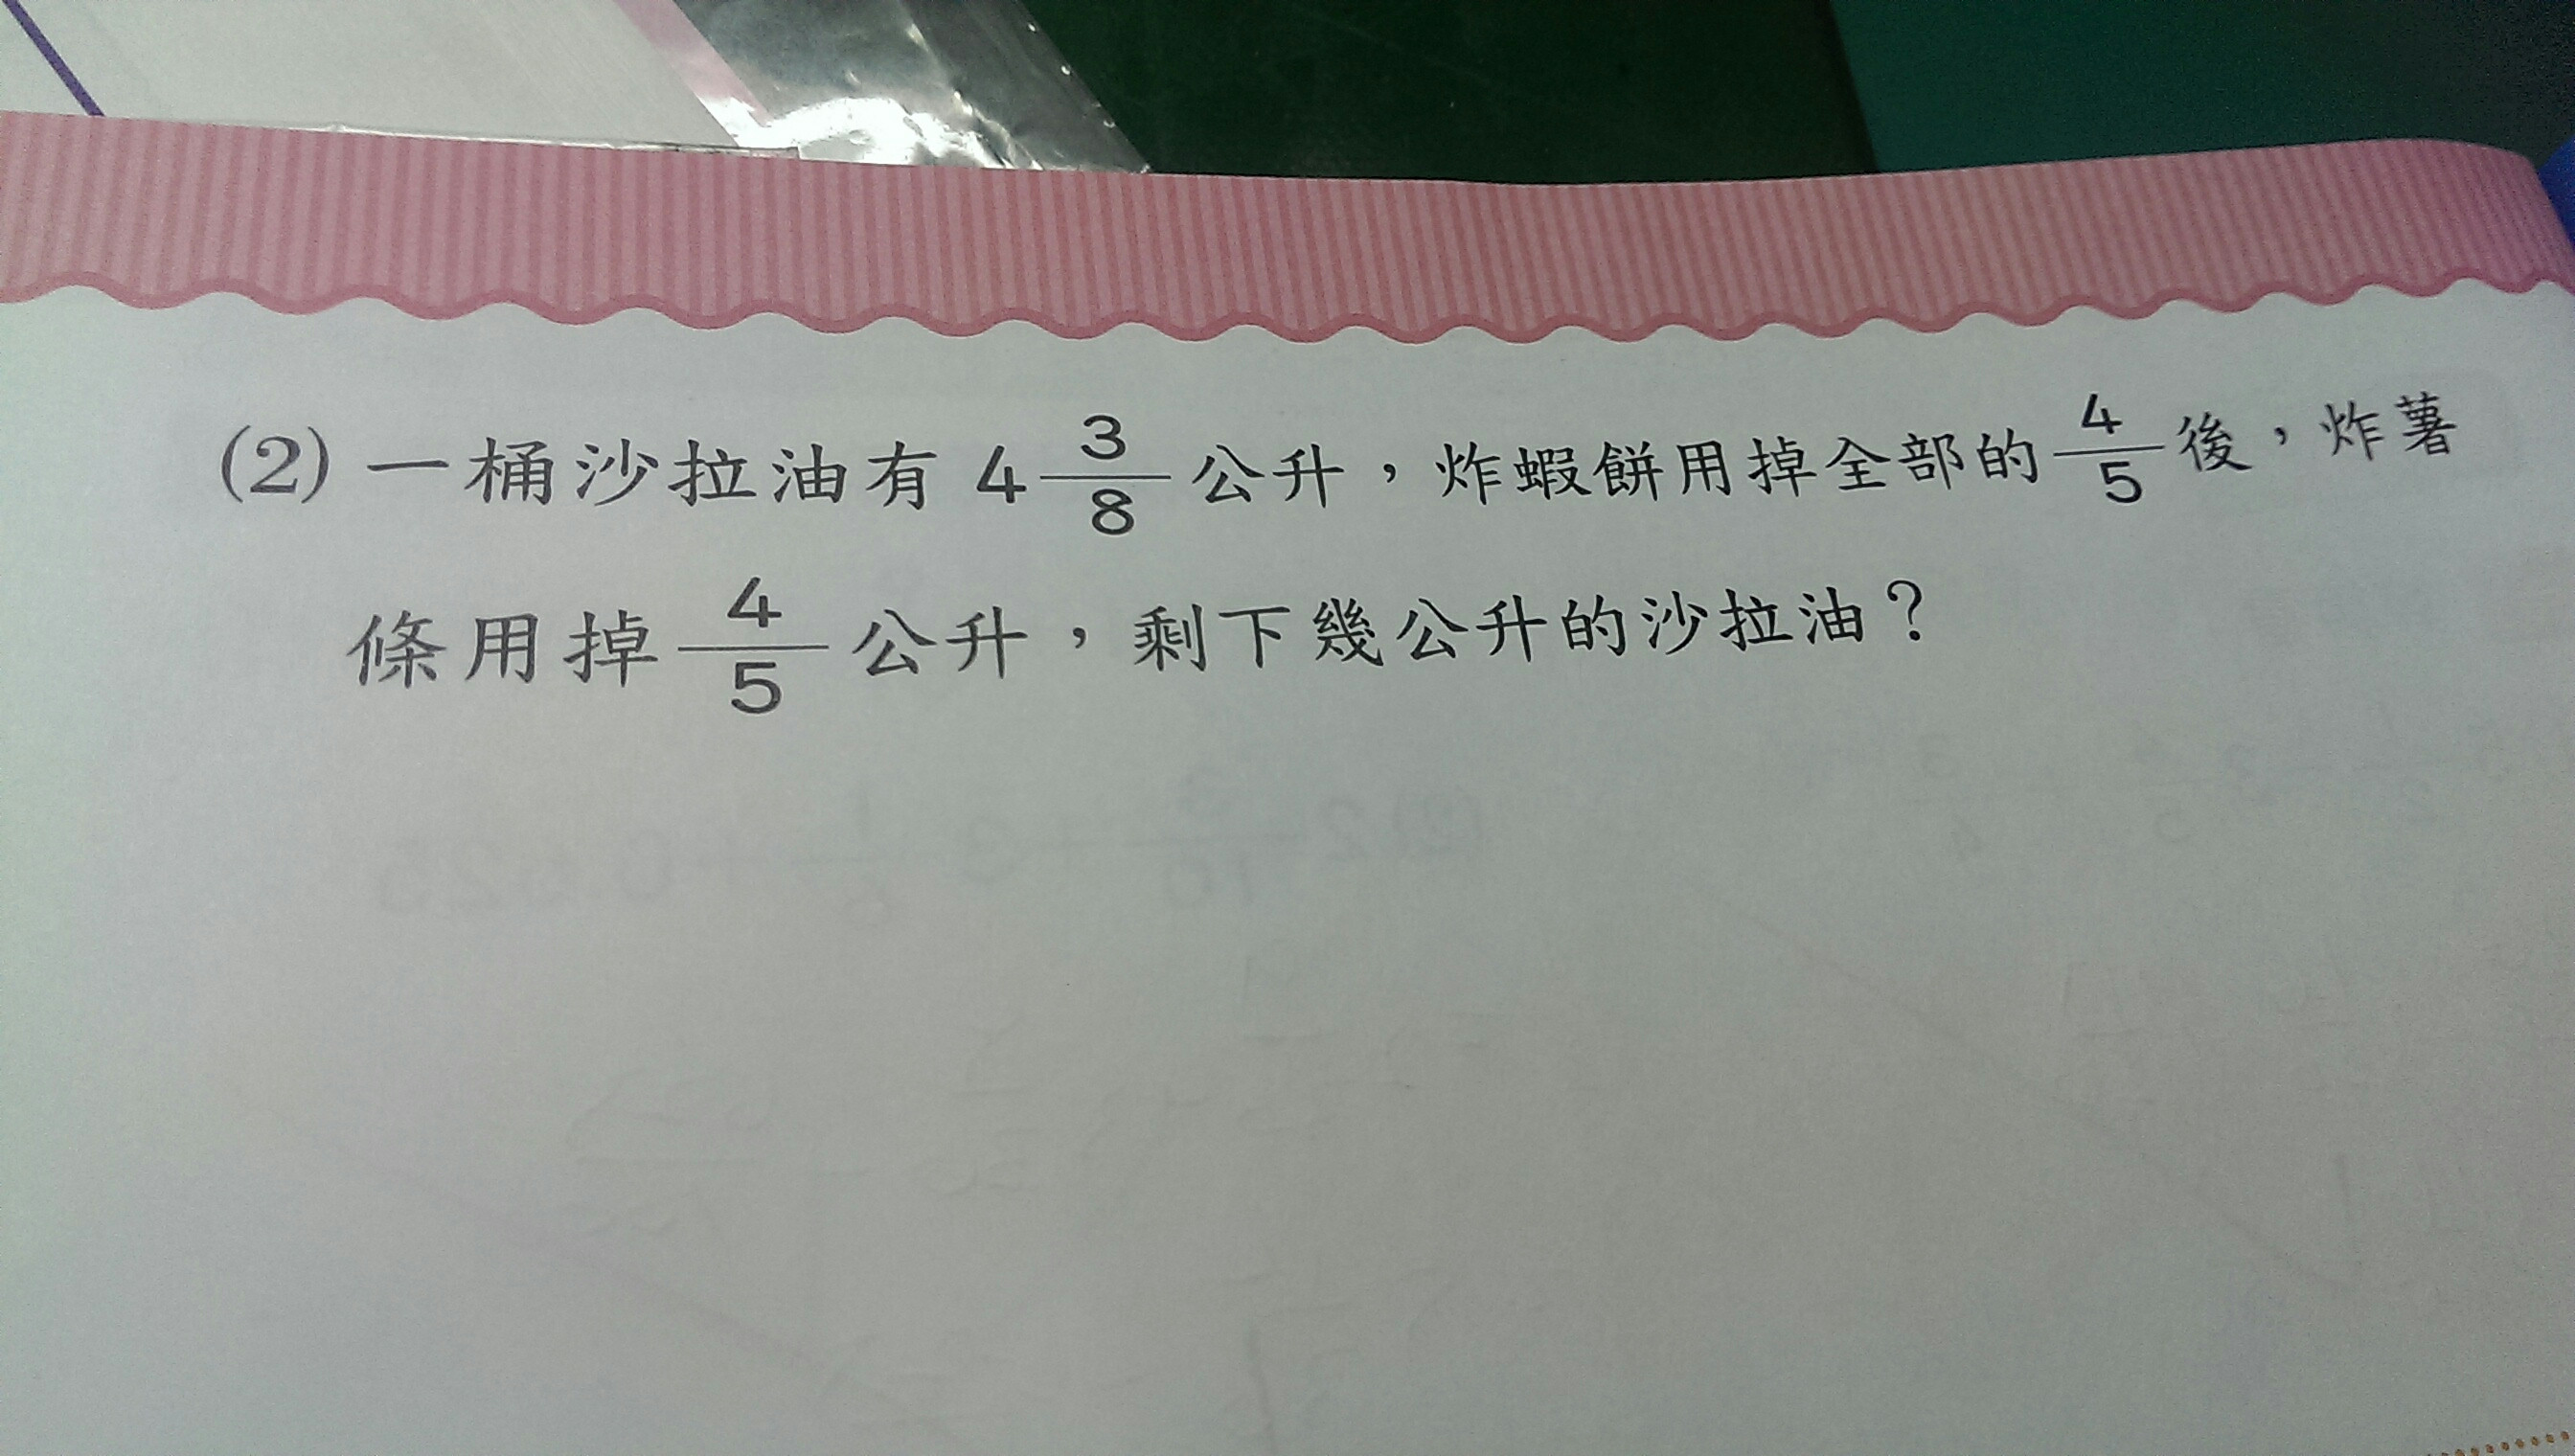 (2) 一桶沙拉油有 4 3/8 公升，炸蝦餅用掉全部的 4/5 後，炸薯
條用掉 4/5 公升，剩下幾公升的沙拉油？